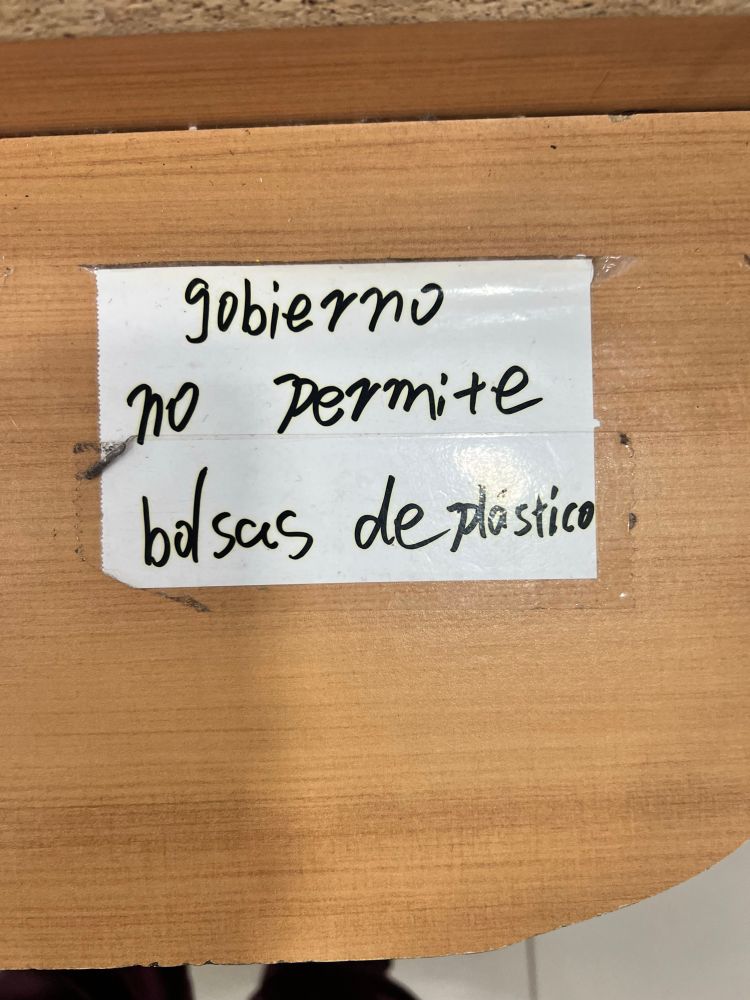 gobierno
no permite
bolsas de plástico